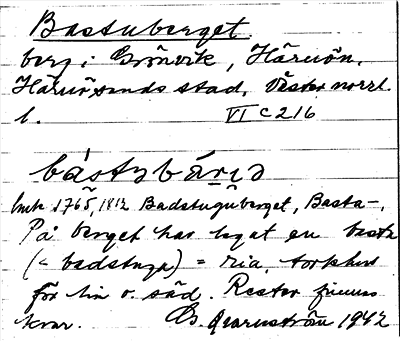 Bastuberget
berg i Grönvik, Härnön,
Härnösands stad, Västernorrl.
l. VI C 216
bástybą̀rịə
1765, 1812 Badstuguberget, Basta-.
På berget har legat en basta
(< badstuga) = ria, torkhus
för lin o. säd. Rester finnas
kvar. G. Qvarnström 1942